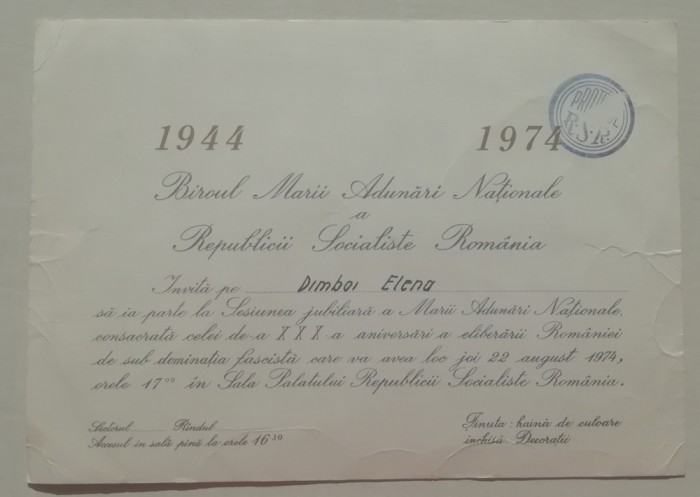 1944 1974
R.S.R.
Biroul Marii Adunări Naționale
a
Republicii Socialiste România
Invită pe Dimboi Elena
să ia parte la Sesiunea jubiliară a Marii Adunări Naționale,
consacrată celei de-a XXX-a aniversări a eliberării României
de sub dominația fascistă care va avea loc joi 22 august 1974,
orele 17⁰⁰ în Sala Palatului Republicii Socialiste România.
Sectorul Rîndul
Accesul în sală pînă la orele 16³⁰
Ținuta: haină de culoare
închisă Decorații